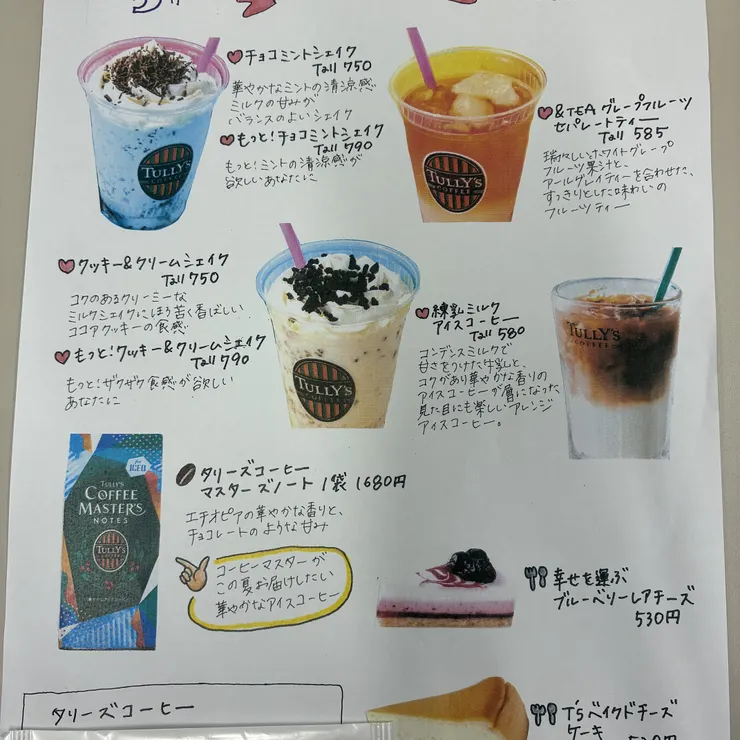 チョコミントシェイク
Tall 750
華やかなミントの清涼感
ミルクの甘みが
バランスのよいシェイク
もっと!チョコミントシェイク
Tall 790
もっと!ミントの清涼感が
欲しいあなたに
TULLY'S
COFFEE
TULLY'S
COFFEE
&TEA グレープフルーツ
セパレートティー
Tall 585
瑞々しいホワイトグレープ
フルーツ果汁と、
アールグレイティーを合わせた、
すっきりとした味わいの
フルーツティー
クッキー&クリームシェイク
Tall 750
コクのあるクリーミーな
ミルクシェイクにほろ苦く香ばしい
ココアクッキーの食感
もっと!クッキー&クリームシェイク
Tall 790
もっと!ザクザク食感が欲しい
あなたに
TULLY'S
COFFEE
練乳ミルク
アイスコーヒー
Tall 580
コンデンスミルクで
甘さをつけた牛乳と、
コクがあり華やかな香りの
アイスコーヒーが層になった、
見た目にも楽しいアレンジ
アイスコーヒー。
TULLY'S
COFFEE
for
ICED
TULLY'S
COFFEE
MASTER'S
NOTES
TULLY'S
タリーズコーヒー
マスターズノート 1袋 1680円
エチオピアの華やかな香りと、
チョコレートのような甘み
コーヒーマスターが
この夏お届けしたい
華やかなアイスコーヒー
幸せを運ぶ
ブルーベリーレアチーズ
530円
T'sベイクドチーズ
ケーキ
タリーズコーヒー